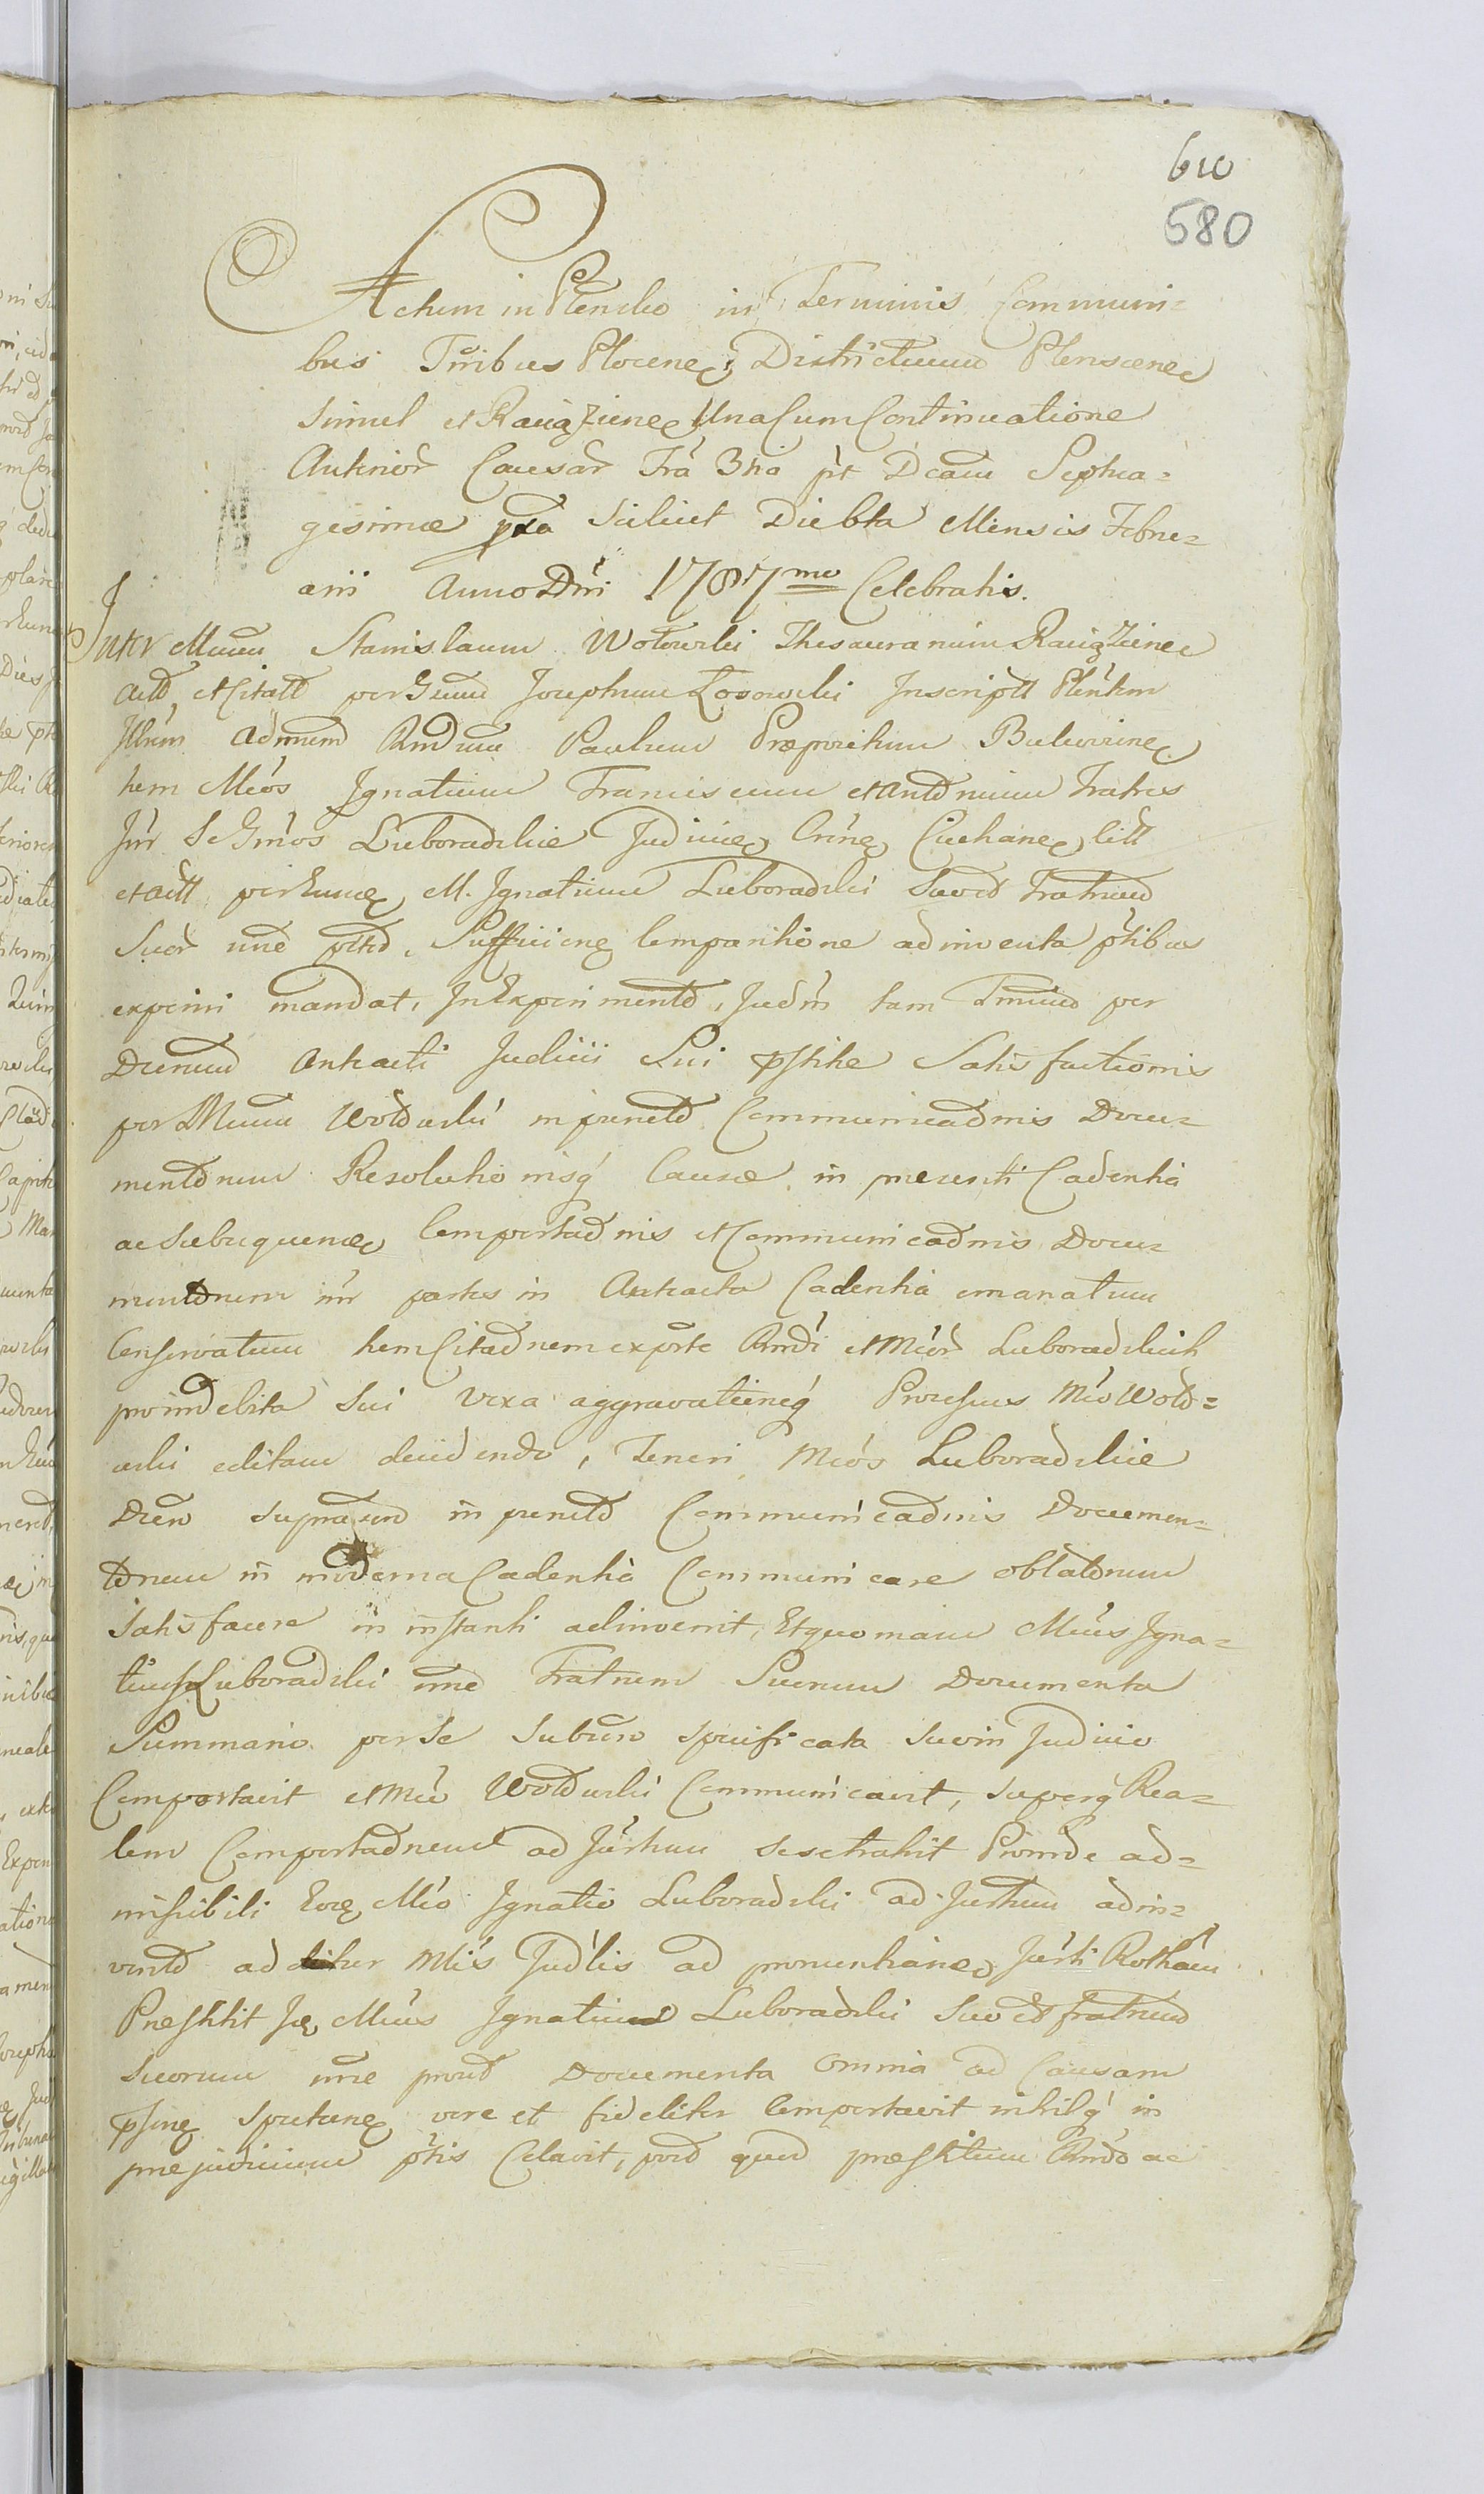 610
580
Actum in Plensko in Terminis Communi=
bus Trribus Plocenę, Districtuum Plenscenę
simul et Raciążienę Una Cum Continuatione
Anterior Causar Fra 3tia pt Dcam Septua=
gesimæ scilicet Die 6ta Mensis Febru=
arii Anno Dni 1787mo Celebratis.
Inter Mcum Stanislaum Wołowski Thesaurarium Raciążienę
act, et Citatt per Gnum Josephum Łosowski Inscriptt
Illrem admmd Rndum Paulum Præpositum
tem Mcos Ignatium Franciscum et Antonium Fratres
Inr Se Gnos Luboradzkie Judicię Crinę Ciechanę Citt
et actt per Eunę M. Ignatium Luboradzki Suo et Fratrum
Suor nne Sufficienę Comparitione adinventa ptibus
experiri mandat, In Experimento, Judm tam per
Decretum Anteacti Judicii Sui pstitæ Satisfactionis
per Mcum Wołowski in puncto Communicaonis Docu=
mentorum Resolutionisq Causæ in præsenti Cadentia
ac subsequenę Comportaonis et Communicaonis Docu=
mentorum inr partes in Anteacta Cadentia emanatum
Conservatum tem Citaonem ex pte Rndi et Mcor Luboradzkich
pro indebita Sui vexa aggravationeq Processus Mco Woło=
wski editam decidendo, Teneri Mcos Luboradzkie
Dcto supra in puncto Communicaonis Documen=
torum in moderna Cadentia Communicare oblatorum
satisfacere in instanti adinvenit, Et quoniam Mcus Igna=
tius Luboradzki nne Fratrum Suorum Documenta
Summario per Se Subscro specificata suo in Judicio
Comportavit et Mco Wołowski Communicavit, superq Rea=
lem Comportaonem ad Jurtum sese trahit Proinde ad=
missibili Eoę Mco Ignatio Luboradzki ad Jurtum adin=
vento additur Mlis Judlis ad pronuntianę Jurti Rotham
Præstitit Ję Mcus Ignatius Luboradzki Suo et fratrum
suorum nne prout Documenta omnia ad Causam
psenę spectanę vere et fideliter Comportavit nihilq in
præjudicium ptis Celavit, post quod præstitum Rndo ac